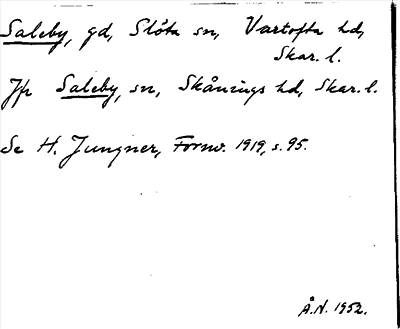 Saleby, gd, Slöta sn, Vartofta hd,
Skar. l.
Jfr Saleby, sn, Skånings hd, Skar. l.
Se H. Jungner, Fornv. 1919, s. 95.
Å.N. 1952.